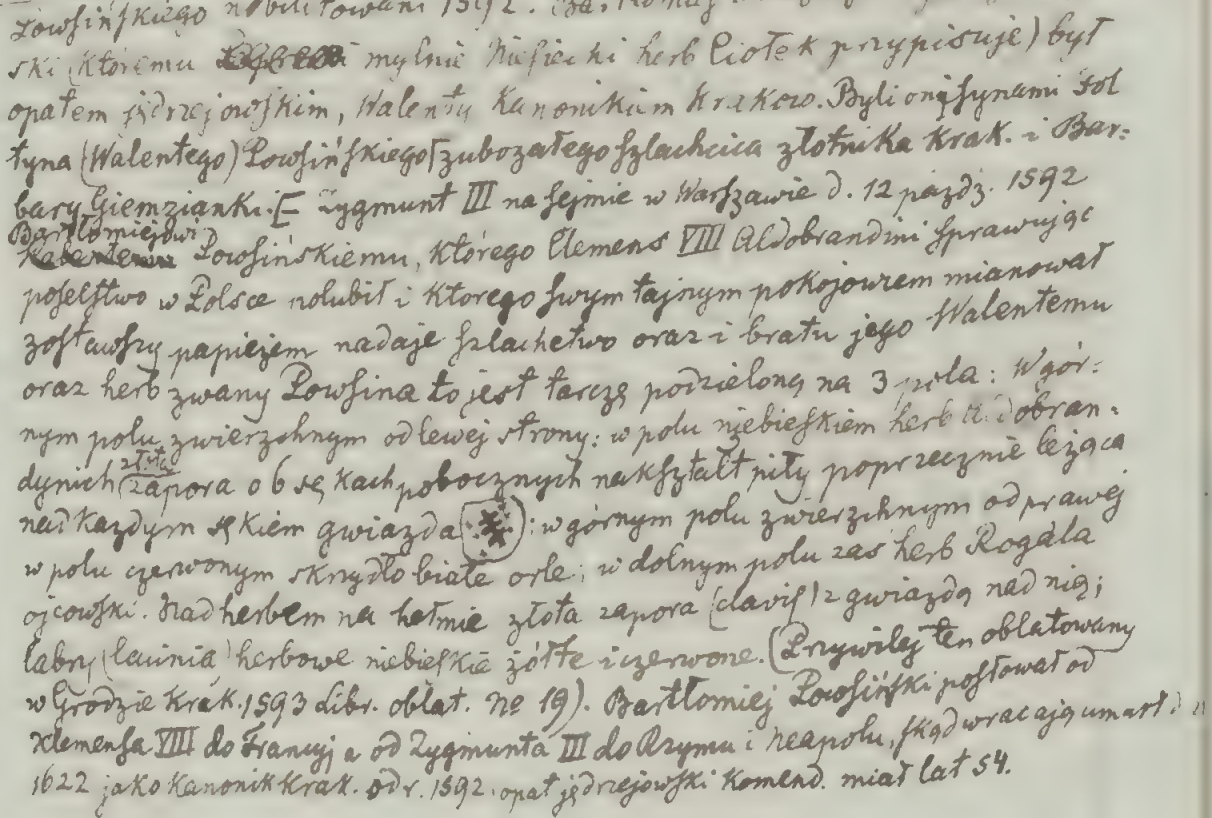 Powsińskiego nobilitowani 1592.
ski (któremu mylnie Niesiecki herb Ciołek przypisuje) był
opatem jędrzejowskim, Walenty Kanonikiem Krakow. Byli oni synami Fol
tyna (Walentego) Powsińskiego [zubożałego szlachcica złotnika Krak. i Bar:
bary Giemzianki. [ Zygmunt III na sejmie w Warszawie d. 12 pazdz. 1592
Bartłomiejowi
Powsińskiemu, którego Clemens VIII Aldobrandini sprawując
poselstwo w Polsce polubił i którego swym tajnym pokojowem mianował
zostawszy papieżem nadaje szlachetwo oraz i bratu jego Walentemu
oraz herb zwany Powsina to jest tarczę podzieloną na 3 pola: W gór:
nym polu zwierzchnym od lewej strony: w polu niebieskiem herb Aldobran:
złota
dynich (zapora o 6 sękach pobocznych nakształt piły poprzecznie leżąca
nad każdym sękiem gwiazda ): w górnym polu zwierzchnym od prawej
w polu czerwonym skrzydło białe orle; w dolnym polu zas herb Rogala
ojcowski. Nad herbem na hełmie złota zapora (clavis) z gwiazdą nad nią;
labry (lacinia) herbowe niebieskie żółte i czerwone. (Przywilej ten oblatowany
w Grodzie Krak. 1593 Libr. oblat. No 19). Bartłomiej Powsiński posłował od
Klemensa VIII do Francyj a od Zygmunta III do Rzymu i Neapolu, skąd wracając umarł d.
1622 jako Kanonik Krak. od r. 1592. opat jędrzejowski Komend. miał lat 54.